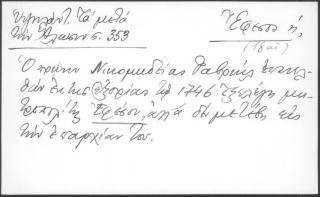 Ὑψηλάντ. Τὰ μετὰ
τὴν Ἅλωσιν σ. 353
Ἔφεσος ἡ,
(18 αἰ)
Ὁ πρώην Νικομηδείας Γαβριὴλ ἐπανελ-
θὼν ἐκ τῆς ἐξορίας τῷ 1746 ἐξελέγη μη-
τροπολίτης Ἐφέσου, ἀλλὰ δὲν μετέβη εἰς
τὴν ἐπαρχίαν του.